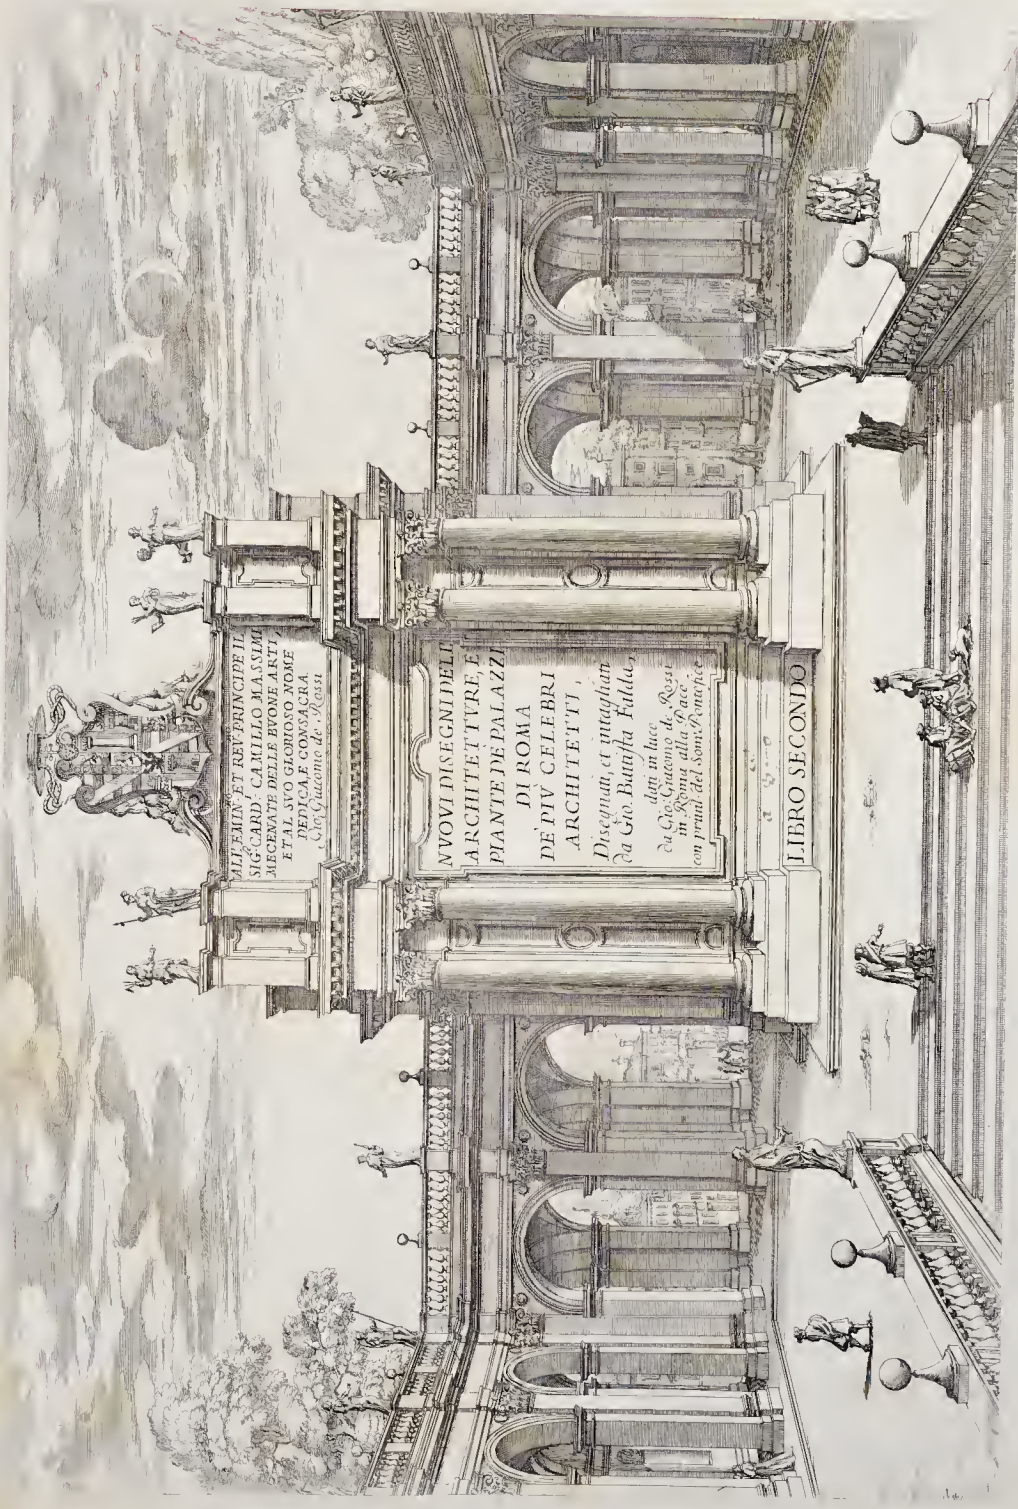 ALL'EMIN.mo ET REV.mo PRINCIPE IL
SIG.r CARD. CAMILLO MASSIMI
MECENATE DELLE BVONE ARTI,
ET AL SVO GLORIOSO NOME
DEDICA, E CONSACRA
Gio: Giacomo de' Rossi
NVOVI DISEGNI DELL'
ARCHITETTVRE, E
PIANTE DE' PALAZZI
DI ROMA
DE' PIV' CELEBRI
ARCHITETTI,
Disegnati, et intagliati
da Gio. Batista Falda,
dati in luce
da Gio. Giacomo de Rossi
in Roma alla Pace
con priuil. del Som. Pontefice
LIBRO SECONDO